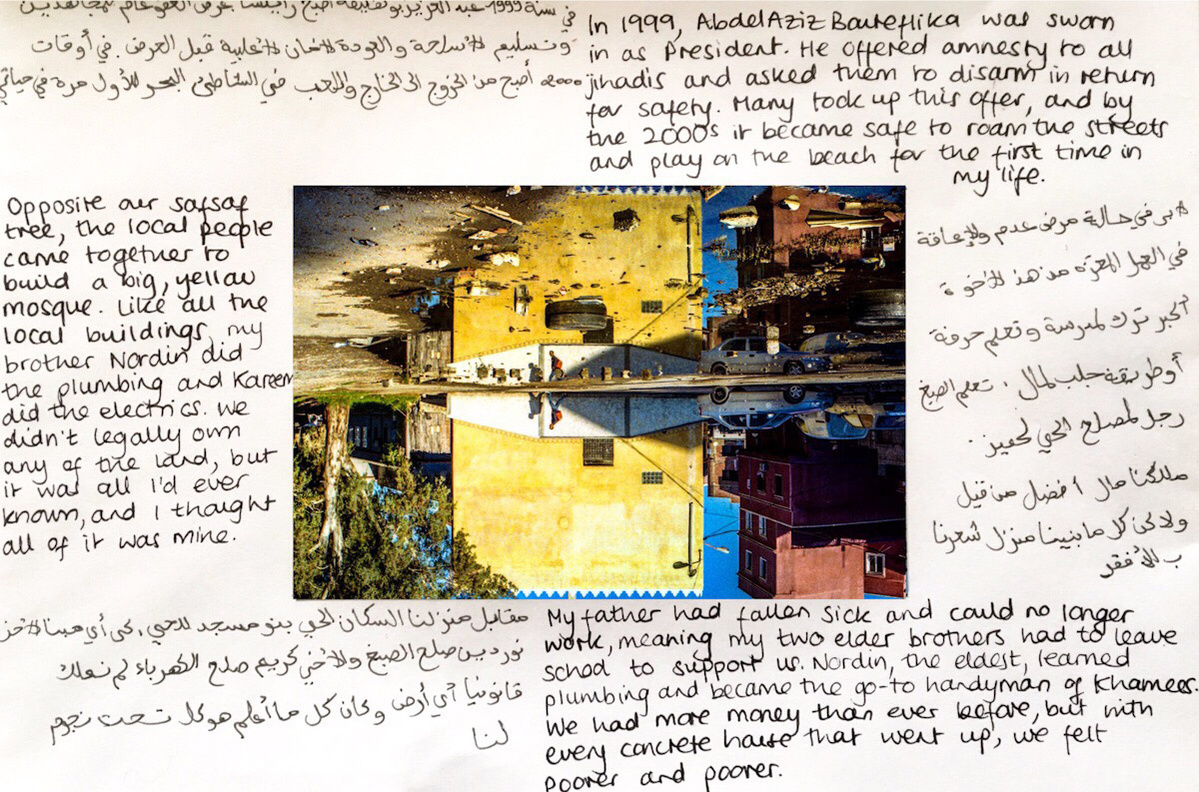 في سنة 1999 عبد العزيز بوتفليقة أصبح رئيسا عرض العفو عام للمجاهدين
وتسليم الأسلحة والعودة لأمان لأغلبية قبل العرض. في أوقات
2000 أصبح من الخروج الى الخارج واللعب في الشاطئ البحر للأول مرة في حياتي
In 1999, AbdelAziz Bouteflika was sworn
in as President. He offered amnesty to all
jihadis and asked them to disarm in return
for safety. Many took up this offer, and by
the 2000s it became safe to roam the streets
and play on the beach for the first time in
my life.
Opposite our safsaf
tree, the local people
came together to
build a big, yellow
mosque. Like all the
local buildings, my
brother Nordin did
the plumbing and Kareem
did the electrics. We
didn't legally own
any of the land, but
it was all I'd ever
known, and I thought
all of it was mine.
في حالة مرض عدم والإعاقة
في العمل
ترك لمدرسة وتعلم حرفة
أو طريقة جلب لمال، تعلم الصبغ
رجل لمصلح الحي
مال أفضل من قبل
ولاكن كل ما بنينا منزل شعرنا
ب للأفقر
مقابل منزلنا السكان الحي بنو مسجد للحي،
نوردين صلح الصبغ والأخي كريم صلح الكهرباء لم نملك
قانونيا أي أرض وكان كل ما أعلم هو كل تحت نجوم
لنا
My father had fallen sick and could no longer
work, meaning my two elder brothers had to leave
school to support us. Nordin, the eldest, learned
plumbing and became the go-to handyman of Khamees.
We had more money than ever before, but with
every concrete house that went up, we felt
poorer and poorer.